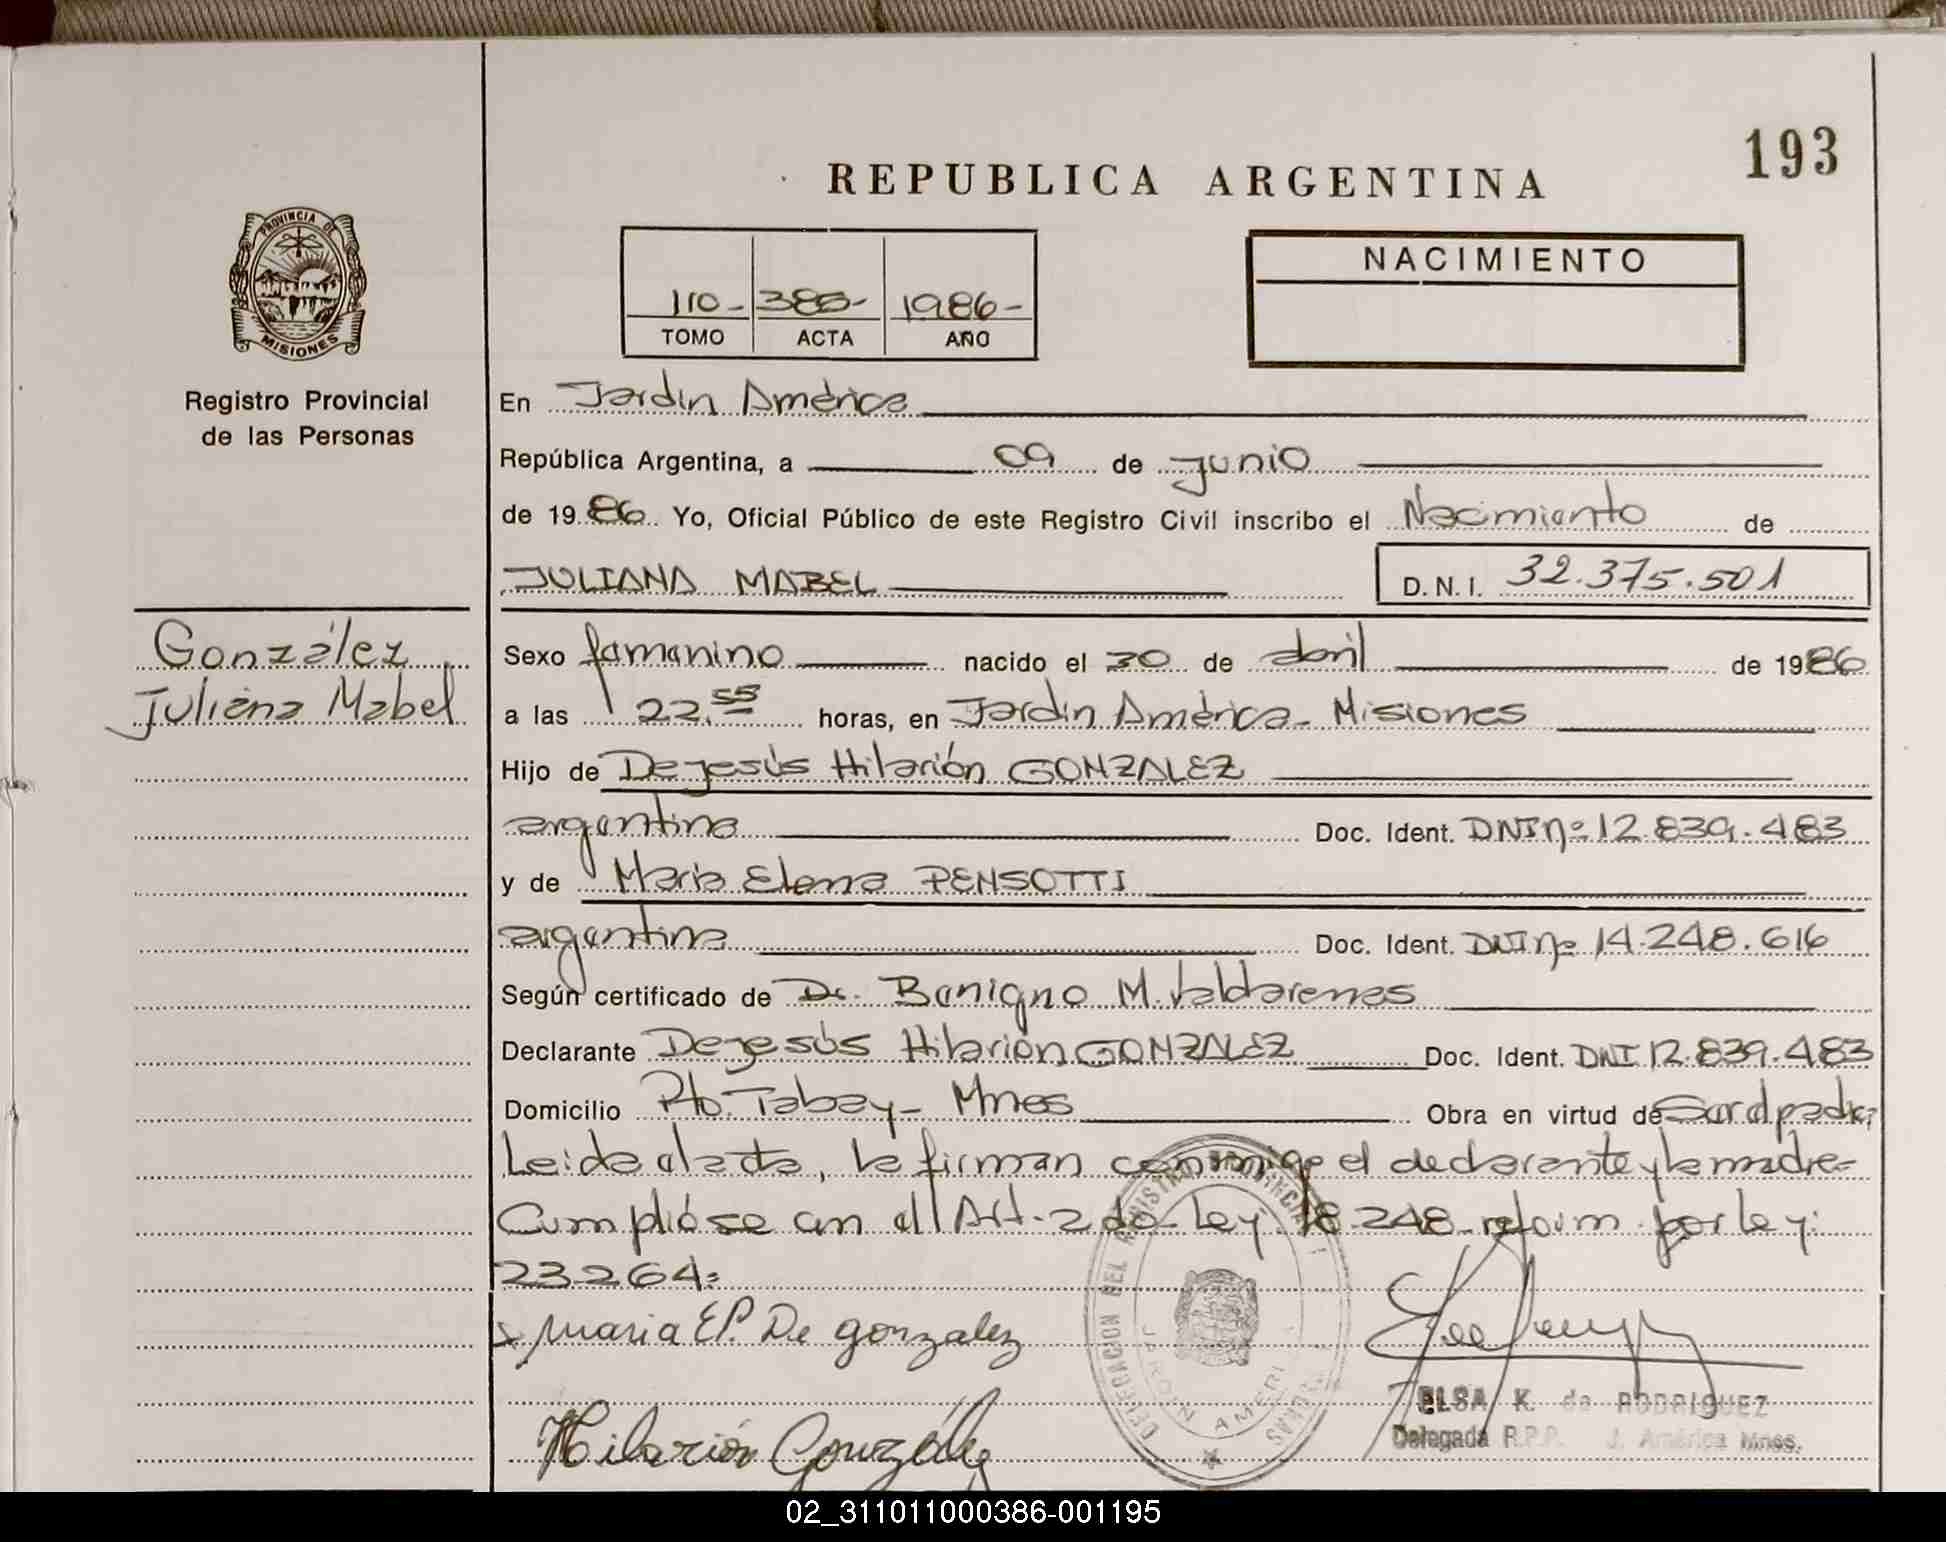 193
REPUBLICA ARGENTINA
PROVINCIA DE
MISIONES
Registro Provincial
de las Personas
110- 385- 1986-
TOMO ACTA AÑO
NACIMIENTO
En Jardín América
República Argentina, a 09 de junio
de 1986 Yo, Oficial Público de este Registro Civil inscribo el Nacimiento de
JULIANA MABEL D.N.I. 32.375.501
González
Juliana Mabel
Sexo femenino nacido el 30 de abril de 1986
a las 22.55 horas, en Jardín América- Misiones
Hijo de Dejesús Hilarión GONZALEZ
argentina Doc. Ident. DNI nº 12.839.483
y de Maria Elena PENSOTTI
argentina Doc. Ident. DNI nº 14.248.616
Según certificado de Dr. Benigno M. Valdarenas
Declarante Dejesús Hilarión GONZALEZ Doc. Ident. DNI 12.839.483
Domicilio Pto. Tabay- Mnes Obra en virtud de
Leida el acta, la firman conmigo el declarante y la madre-
Cumplióse con el Art- 2do- Ley 18-248- reform. por ley:
23-264=
Maria E.P. De gonzalez
Hilarión González
DELEGACION DEL REGISTRO PROVINCIAL
JARDIN AMERI
ELSA K. de RODRIGUEZ
Delegada R.P.P. J. América Mnes.
02_311011000386-001195